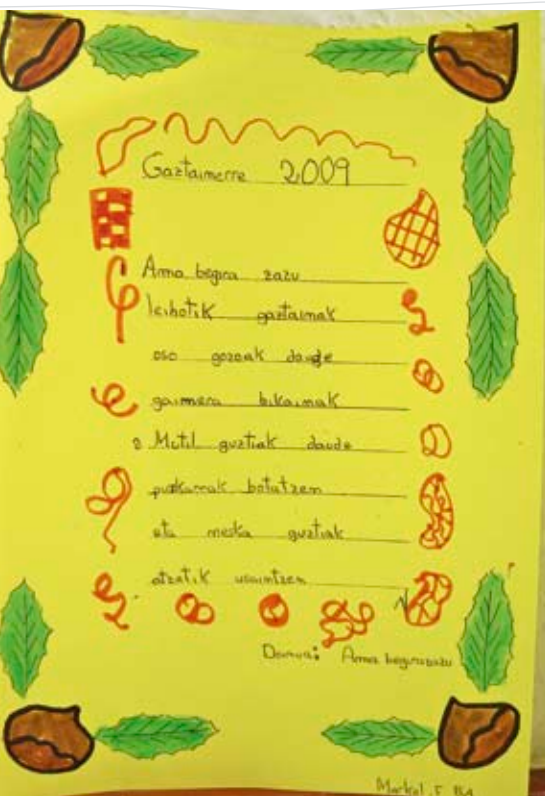 Gaztaimerre 2009
Ama begira zazu
leihotik gaztainak
oso gozoak daude
gainera bikainak
Mutil guztiak daude
puzkarrak botatzen
eta neska guztiak
atzetik usaintzen
Doinua: Ama begirazazu